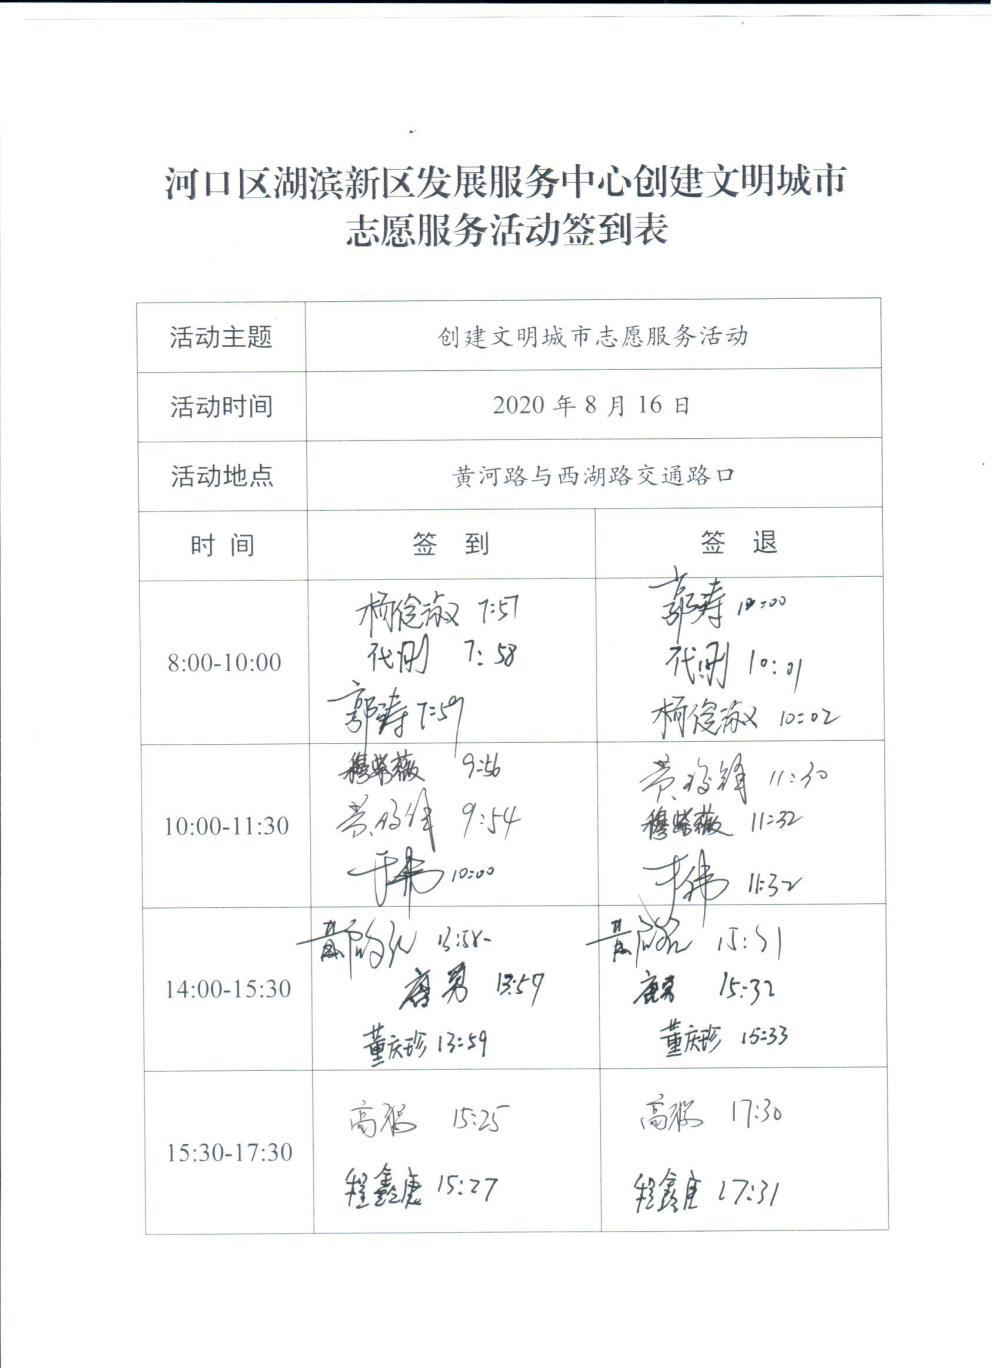 河口区湖滨新区发展服务中心创建文明城市
志愿服务活动签到表
活动主题 创建文明城市志愿服务活动
活动时间 2020 年 8 月 16 日
活动地点 黄河路与西湖路交通路口
时 间 签 到 签 退
8:00-10:00
杨俊淑 7:57 郭涛 10:00
代刚 7:58 代刚 10:01
郭涛 7:59 杨俊淑 10:02
10:00-11:30
穆紫薇 9:56 11:30
9:54 穆紫薇 11:32
于伟 10:00 于伟 11:32
14:00-15:30
13:58 15:31
唐勇 13:57 唐勇 15:32
董庆珍 13:59 董庆珍 15:33
15:30-17:30
高 15:25 高 17:30
程鑫唐 15:27 程鑫唐 17:31